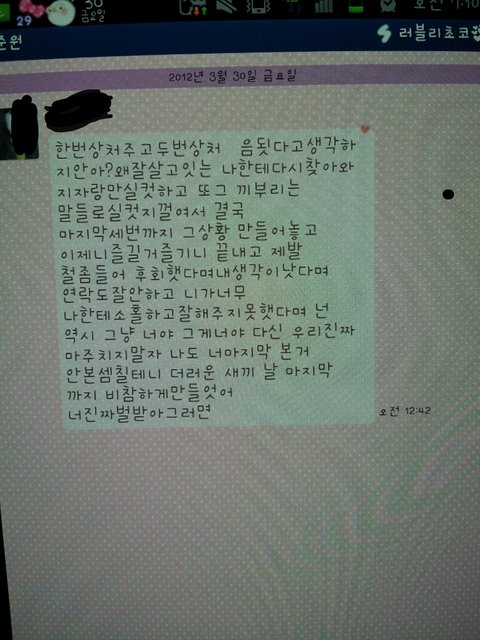 30
29
금요일
오전
준원
러블리초코
2012년 3월 30일 금요일
한번상처주고두번상처 음됫다고생각하
지안아?왜잘살고잇는 나한테다시찾아와
지자랑만실컷하고 또그 끼부리는
말들로실컷지껄여서 결국
마지막세번까지 그상황 만들어놓고
이제니즐길거즐기니 끝내고 제발
철좀들어 후회햇다며내생각이낫다며
연락도잘안하고 니가너무
나한테소홀하고잘해주지못햇다며 넌
역시 그냥 너야 그게너야 다신 우리진짜
마주치지말자 나도 너마지막 본거
안본셈칠테니 더러운 새끼 날 마지막
까지 비참하게만들엇어
너진짜벌받아그러면
오전 12:42